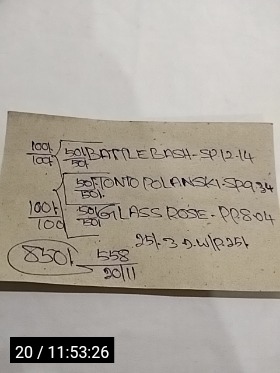 100/- 50/- BATTLEBASH-SP12.14
100/- 50/-
50/- TONTO POLANSKI-SP9.34
50/-
100/- 50/- GLASS ROSE. PP8.04
100 50/-
25/- 3 D.W/P.25/-
850/- 558
20/11
20 / 11:53:26